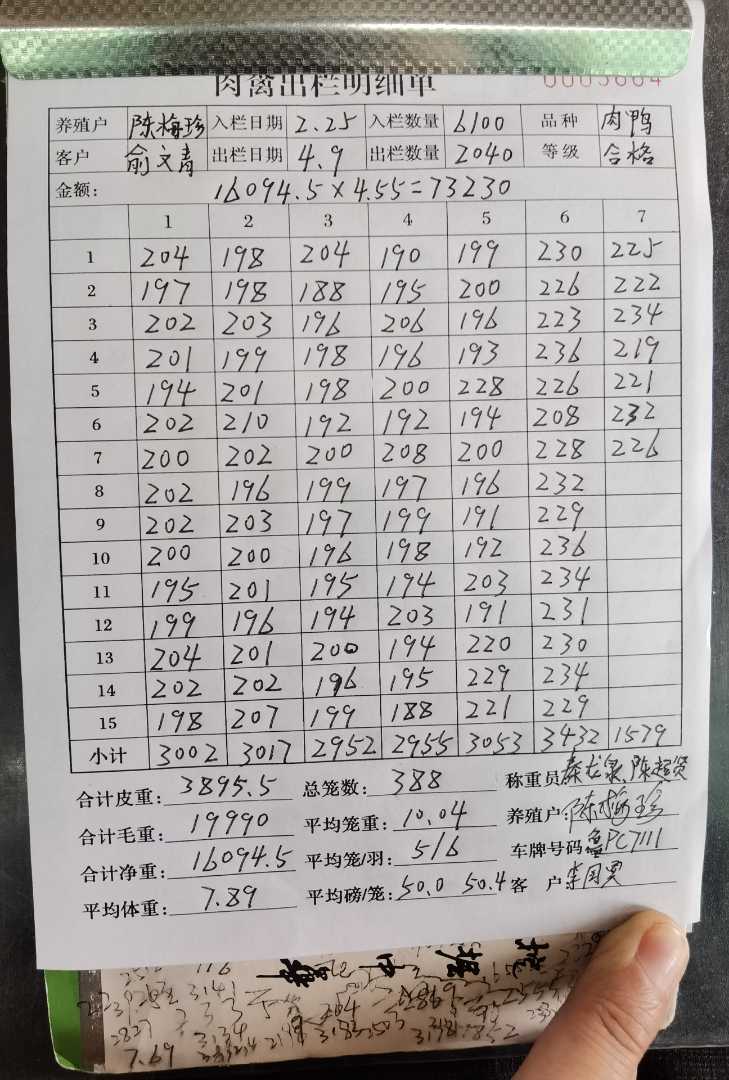 肉禽出栏明细单 0003664
养殖户 陈梅珍 入栏日期 2.25 入栏数量 6100 品种 肉鸭
客户 俞文青 出栏日期 4.9 出栏数量 2040 等级 合格
金额: 16094.5×4.55=73230
1 2 3 4 5 6 7
1 204 198 204 190 199 230 225
2 197 198 188 195 200 226 222
3 202 203 196 206 196 223 234
4 201 199 198 196 193 236 219
5 194 201 198 200 228 226 221
6 202 210 192 192 194 208 232
7 200 202 200 208 200 228 226
8 202 196 199 197 196 232
9 202 203 197 199 191 229
10 200 200 196 198 192 236
11 195 201 195 194 203 234
12 199 196 194 203 191 231
13 204 201 200 194 220 230
14 202 202 196 195 229 234
15 198 207 199 188 221 229
小计 3002 3017 2952 2955 3053 3432 1579
合计皮重: 3895.5 总笼数: 388 称重员
合计毛重: 19990 平均笼重: 10.04 养殖户: 陈梅珍
合计净重: 16094.5 平均笼/羽: 5/6 车牌号码 鲁PC7111
平均体重: 7.89 平均磅/笼: 50.0 50.4 客 户:
7.69